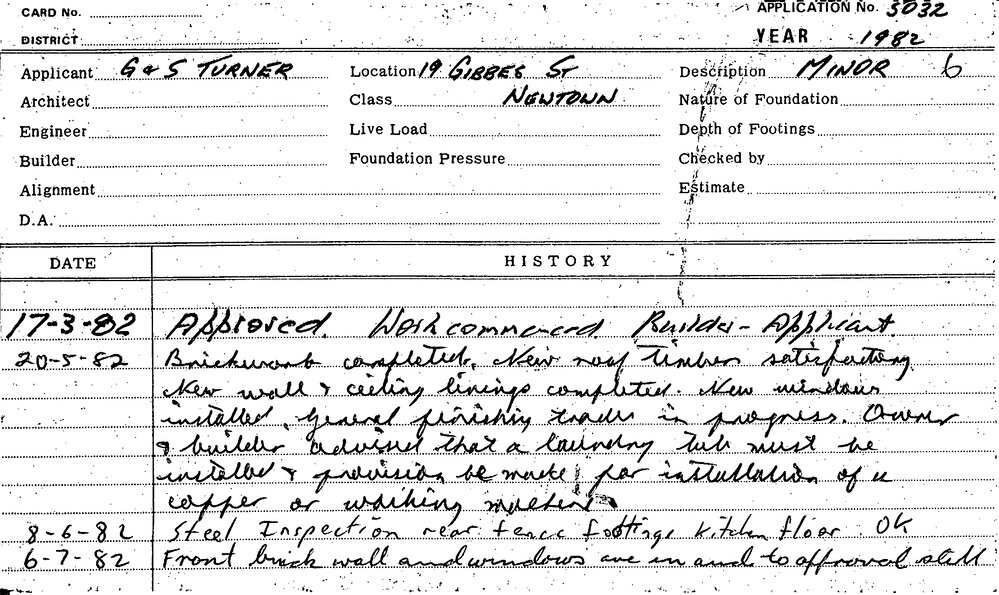 CARD No.
APPLICATION No. 3032
DISTRICT
YEAR 1982
Applicant G & S TURNER Location 19 GIBBES ST Description MINOR 6
Architect Class NEWTOWN Nature of Foundation
Engineer Live Load Depth of Footings
Builder Foundation Pressure Checked by
Alignment Estimate
D.A.
DATE HISTORY
17-3-82 Approved. Work commenced. Builder - Applicant
20-5-82 Brickwork completed. New roof timber satisfactory.
New wall & ceiling linings completed. New windows
installed. General finishing trades in progress. Owner
& builder advised that a laundry tub must be
installed & provision be made for installation of a
copper or washing machine.
8-6-82 Steel Inspection rear fence footings kitchen floor OK
6-7-82 Front brick wall and windows are in and to approval still